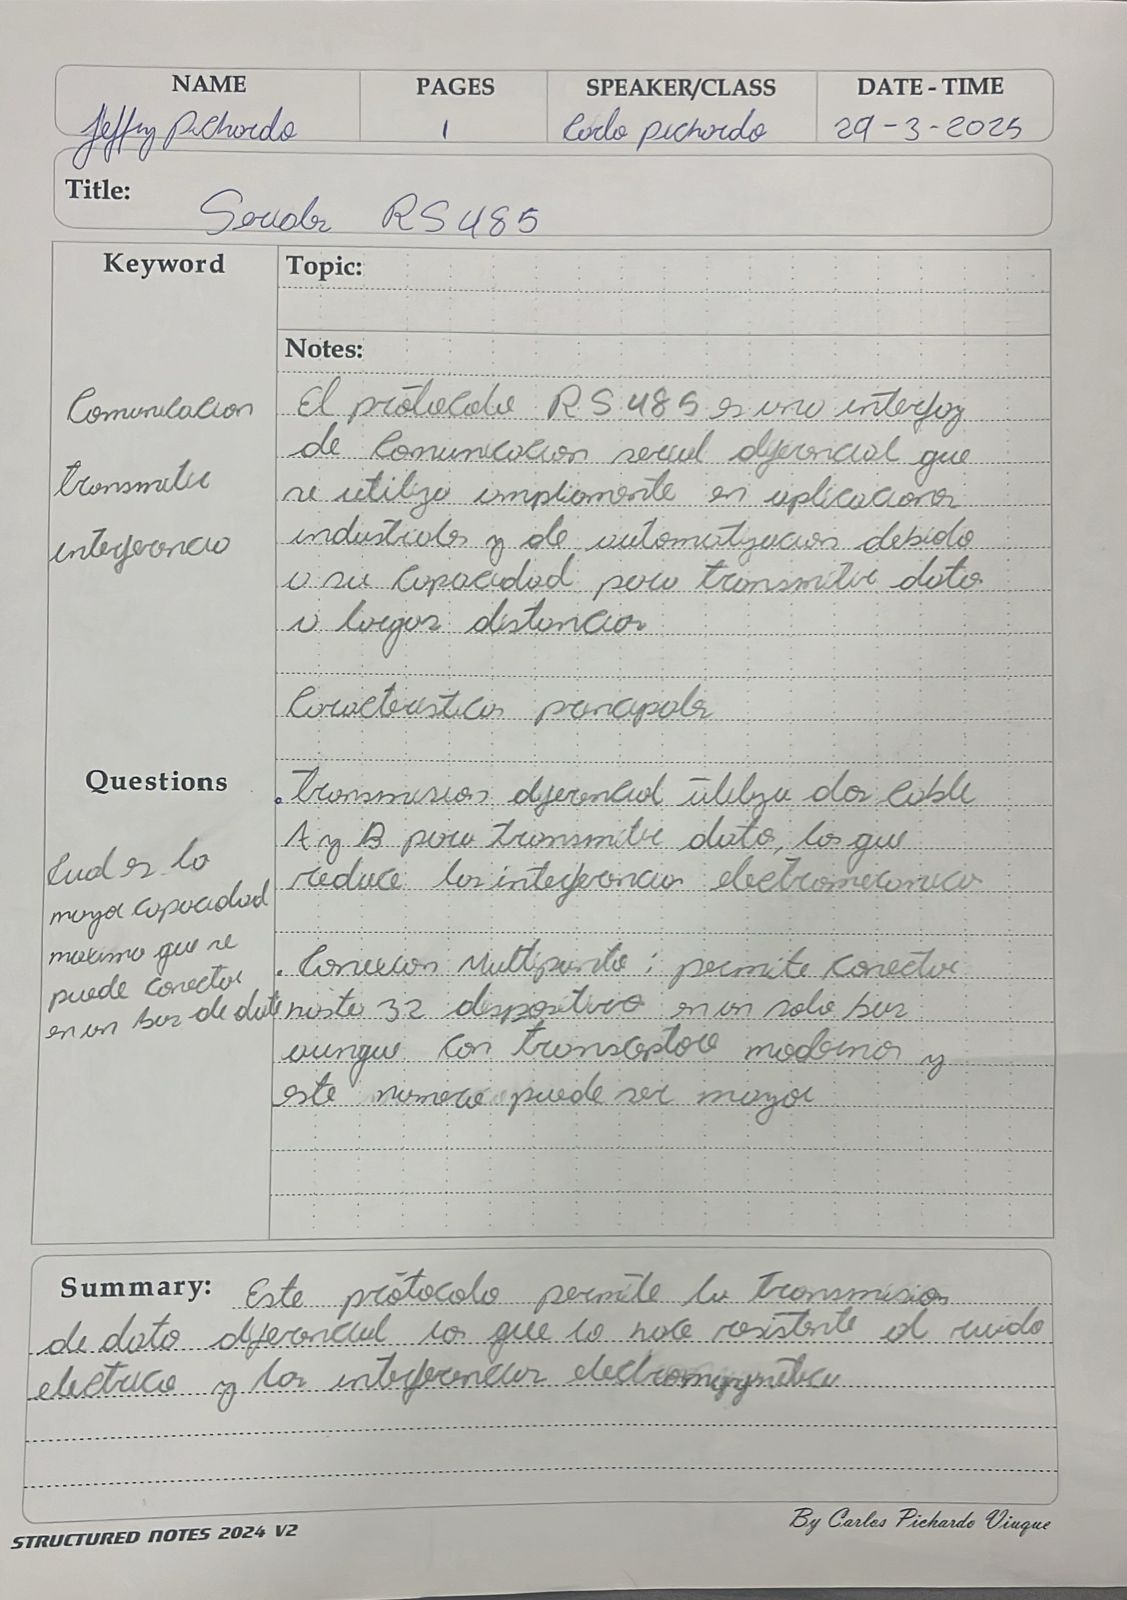 NAME PAGES SPEAKER/CLASS DATE - TIME
Jeffry Pichardo 1 Carlo Pichardo 29-3-2025
Title:
RS485
Keyword
Topic:
Notes:
Comunicacion
transmitir
interferencia
El protocolo RS485 es una interfaz
de Comunicacion serial diferencial que
se utiliza ampliamente en aplicaciones
industriales y de automatizacion debido
a su Capacidad para transmitir datos
a largas distancias
Caracteristicas principales
Questions
Cual es la
mayor capacidad
maximo que se
puede conectar
en un bus de dato
. Transmision diferencial utiliza dos Cable
A y B para transmitir dato, los que
reduce las interferencias electromecanica
. Conexion Multipunto : permite Conectar
hasta 32 dispositivo en un solo bus
aunque con transceptore modernos y
este numero puede ser mayor
Summary: Este protocolo permite la transmision
de dato diferencial los que lo hace resistente al ruido
electrico y las interferencias electromagnetica
STRUCTURED NOTES 2024 V2
By Carlos Pichardo Viuque